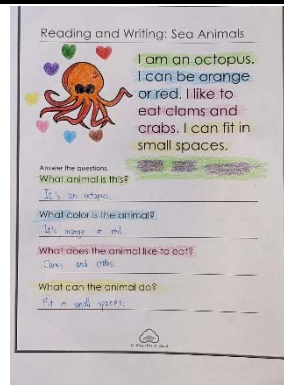 Reading and Writing: Sea Animals
I am an octopus.
I can be orange
or red. I like to
eat clams and
crabs. I can fit in
small spaces.
Answer the questions.
What animal is this?
It's an octopus.
What color is the animal?
It's orange or red.
What does the animal like to eat?
Clams and crabs.
What can the animal do?
Fit in small spaces.